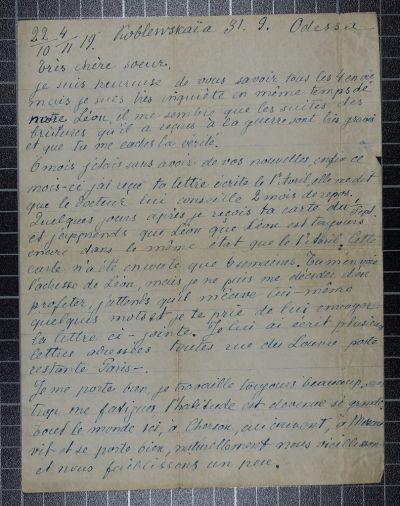 22 4 Koblewskaïa 31. 9. Odessa
10 11 19.
Très chère soeur.
je suis heureuse de vous savoir tous les 4 en vie
mais je suis très inquiète en même temps de
notre Léon, il me semble que les suites des
qu'il a reçues à la guerre sont très graves
et que tu me caches la vérité.
6 mois j'étais sans avoir de vos nouvelles, enfin ce
mois-ci j'ai reçu ta lettre écrite le 1 Avril, elle me dit
que le docteur lui conseille 2 mois de repos.
Quelques jours après je reçois ta carte du 1 Sept.
et j'apprends que Léon est toujours
encore dans le même état que le 1 Avril. Cette
carte n'a été en route que 6 semaines. Tu m'envoies
l'adresse de Léon, mais je ne puis me décider d'en
profiter, j'attends qu'il m'écrive lui-même
quelques mots et je te prie de lui envoyer
la lettre ci-jointe. Je lui ai écrit plusieurs
lettres adressées toutes rue du Louvre poste
restante Paris-.
Je me porte bien, je travaille toujours beaucoup, sans
trop me fatiguer l'habitude est devenue si grande.
Tout le monde ici, à Cherson,
vit et se porte bien, naturellement nous vieillissons
et nous faiblissons un peu.